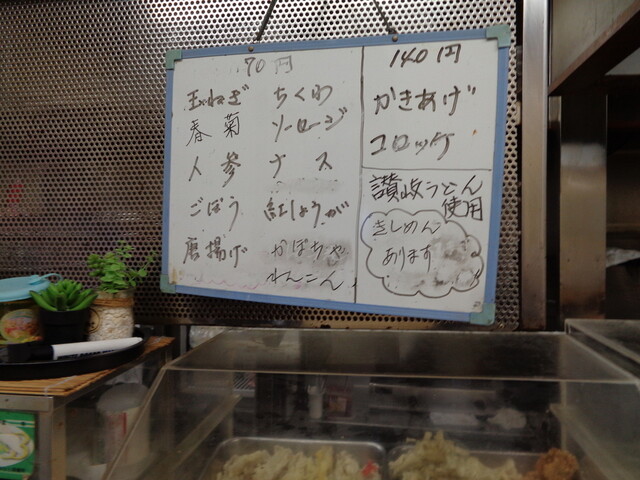 70円
玉ねぎ
春菊
人参
ごぼう
唐揚げ
ちくわ
ソーセージ
ナス
紅しょうが
かぼちゃ
れんこん
140円
かきあげ
コロッケ
讃岐うどん
使用
きしめん
あります